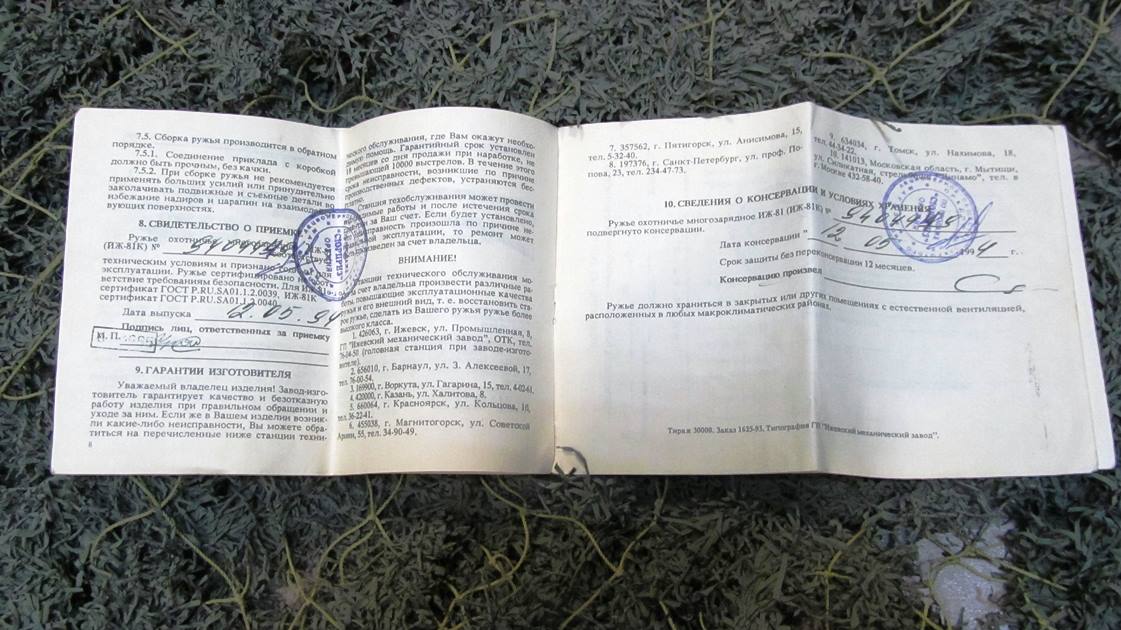 7.5. Сборка ружья производится в обратном
порядке.
7.5.1. Соединение приклада с коробкой
должно быть прочным, без качки.
7.5.2. При сборке ружья не рекомендуется
применять больших усилий или принудительно
заколачивать подвижные и съемные детали во
избежание надиров и царапин на взаимо-
вующих поверхностях.
8. СВИДЕТЕЛЬСТВО О ПРИЕМКЕ
Ружье охотничье
(ИЖ-81К) №
техническим условиям и признано для
эксплуатации. Ружье сертифицировано на
ветствие требованиям безопасности. Для
сертификат ГОСТ Р.RU.SA01.1.2.0039, ИЖ-81К
сертификат ГОСТ Р.RU.SA01.1.2.0040.
Дата выпуска 12.05.94
Подпись лиц, ответственных за приемку
М. П.
9. ГАРАНТИИ ИЗГОТОВИТЕЛЯ
Уважаемый владелец изделия! Завод-изго-
товитель гарантирует качество и безотказную
работу изделия при правильном обращении и
уходе за ним. Если же в Вашем изделии возник-
ли какие-либо неисправности, Вы можете обра-
титься на перечисленные ниже станции техни-
8
ческого обслуживания, где Вам окажут необхо-
димую помощь. Гарантийный срок установлен
18 месяцев со дня продажи при наработке, не
превышающей 10000 выстрелов. В течение этого
срока неисправности, возникшие по причине
производственных дефектов, устраняются бес-
платно.
Станция техобслуживания может провести
работы и после истечения срока
за Ваш счет. Если будет установлено,
неисправность произошла по причине не-
эксплуатации, то ремонт может
за счет владельца.
ВНИМАНИЕ!
Станции технического обслуживания мо-
за счет владельца произвести различные ра-
боты, повышающие эксплуатационные качества
ружья и его внешний вид, т. е. восстановить ста-
рое ружье, сделать из Вашего ружья ружье более
высокого класса.
1. 426063, г. Ижевск, ул. Промышленная, 8,
ГП "Ижевский механический завод", ОТК, тел.
76-04-50 (головная станция при заводе-изгото-
вителе).
2. 656010, г. Барнаул, ул. З. Алексеевой, 17,
тел. 76-00-54.
3. 169900, г. Воркута, ул. Гагарина, 15, тел. 4-02-61.
4. 420000, г. Казань, ул. Халитова, 8.
5. 660064, г. Красноярск, ул. Кольцова, 10,
тел. 36-22-41.
6. 455038, г. Магнитогорск, ул. Советской
Армии, 55, тел. 34-90-49.
7. 357562, г. Пятигорск, ул. Анисимова, 15,
тел. 5-32-40.
8. 197376, г. Санкт-Петербург, ул. проф. По-
пова, 23, тел. 234-47-73.
9. 634034, г. Томск, ул. Нахимова, 18,
тел. 44-34-22.
10. 141013, Московская область, г. Мытищи,
ул. Силикатная, "Динамо", тел. в
г. Москве 432-58-40.
10. СВЕДЕНИЯ О КОНСЕРВАЦИИ И УСЛОВИЯХ ХРАНЕНИЯ
Ружье охотничье многозарядное ИЖ-81 (ИЖ-81К) №
подвергнуто консервации.
Дата консервации " 12 05 1994 г.
Срок защиты без переконсервации 12 месяцев.
Консервацию произвел
Ружье должно храниться в закрытых или других помещениях с естественной вентиляцией,
расположенных в любых макроклиматических районах.
Тираж 30000. Заказ 1625-93. Типография ГП "Ижевский механический завод".